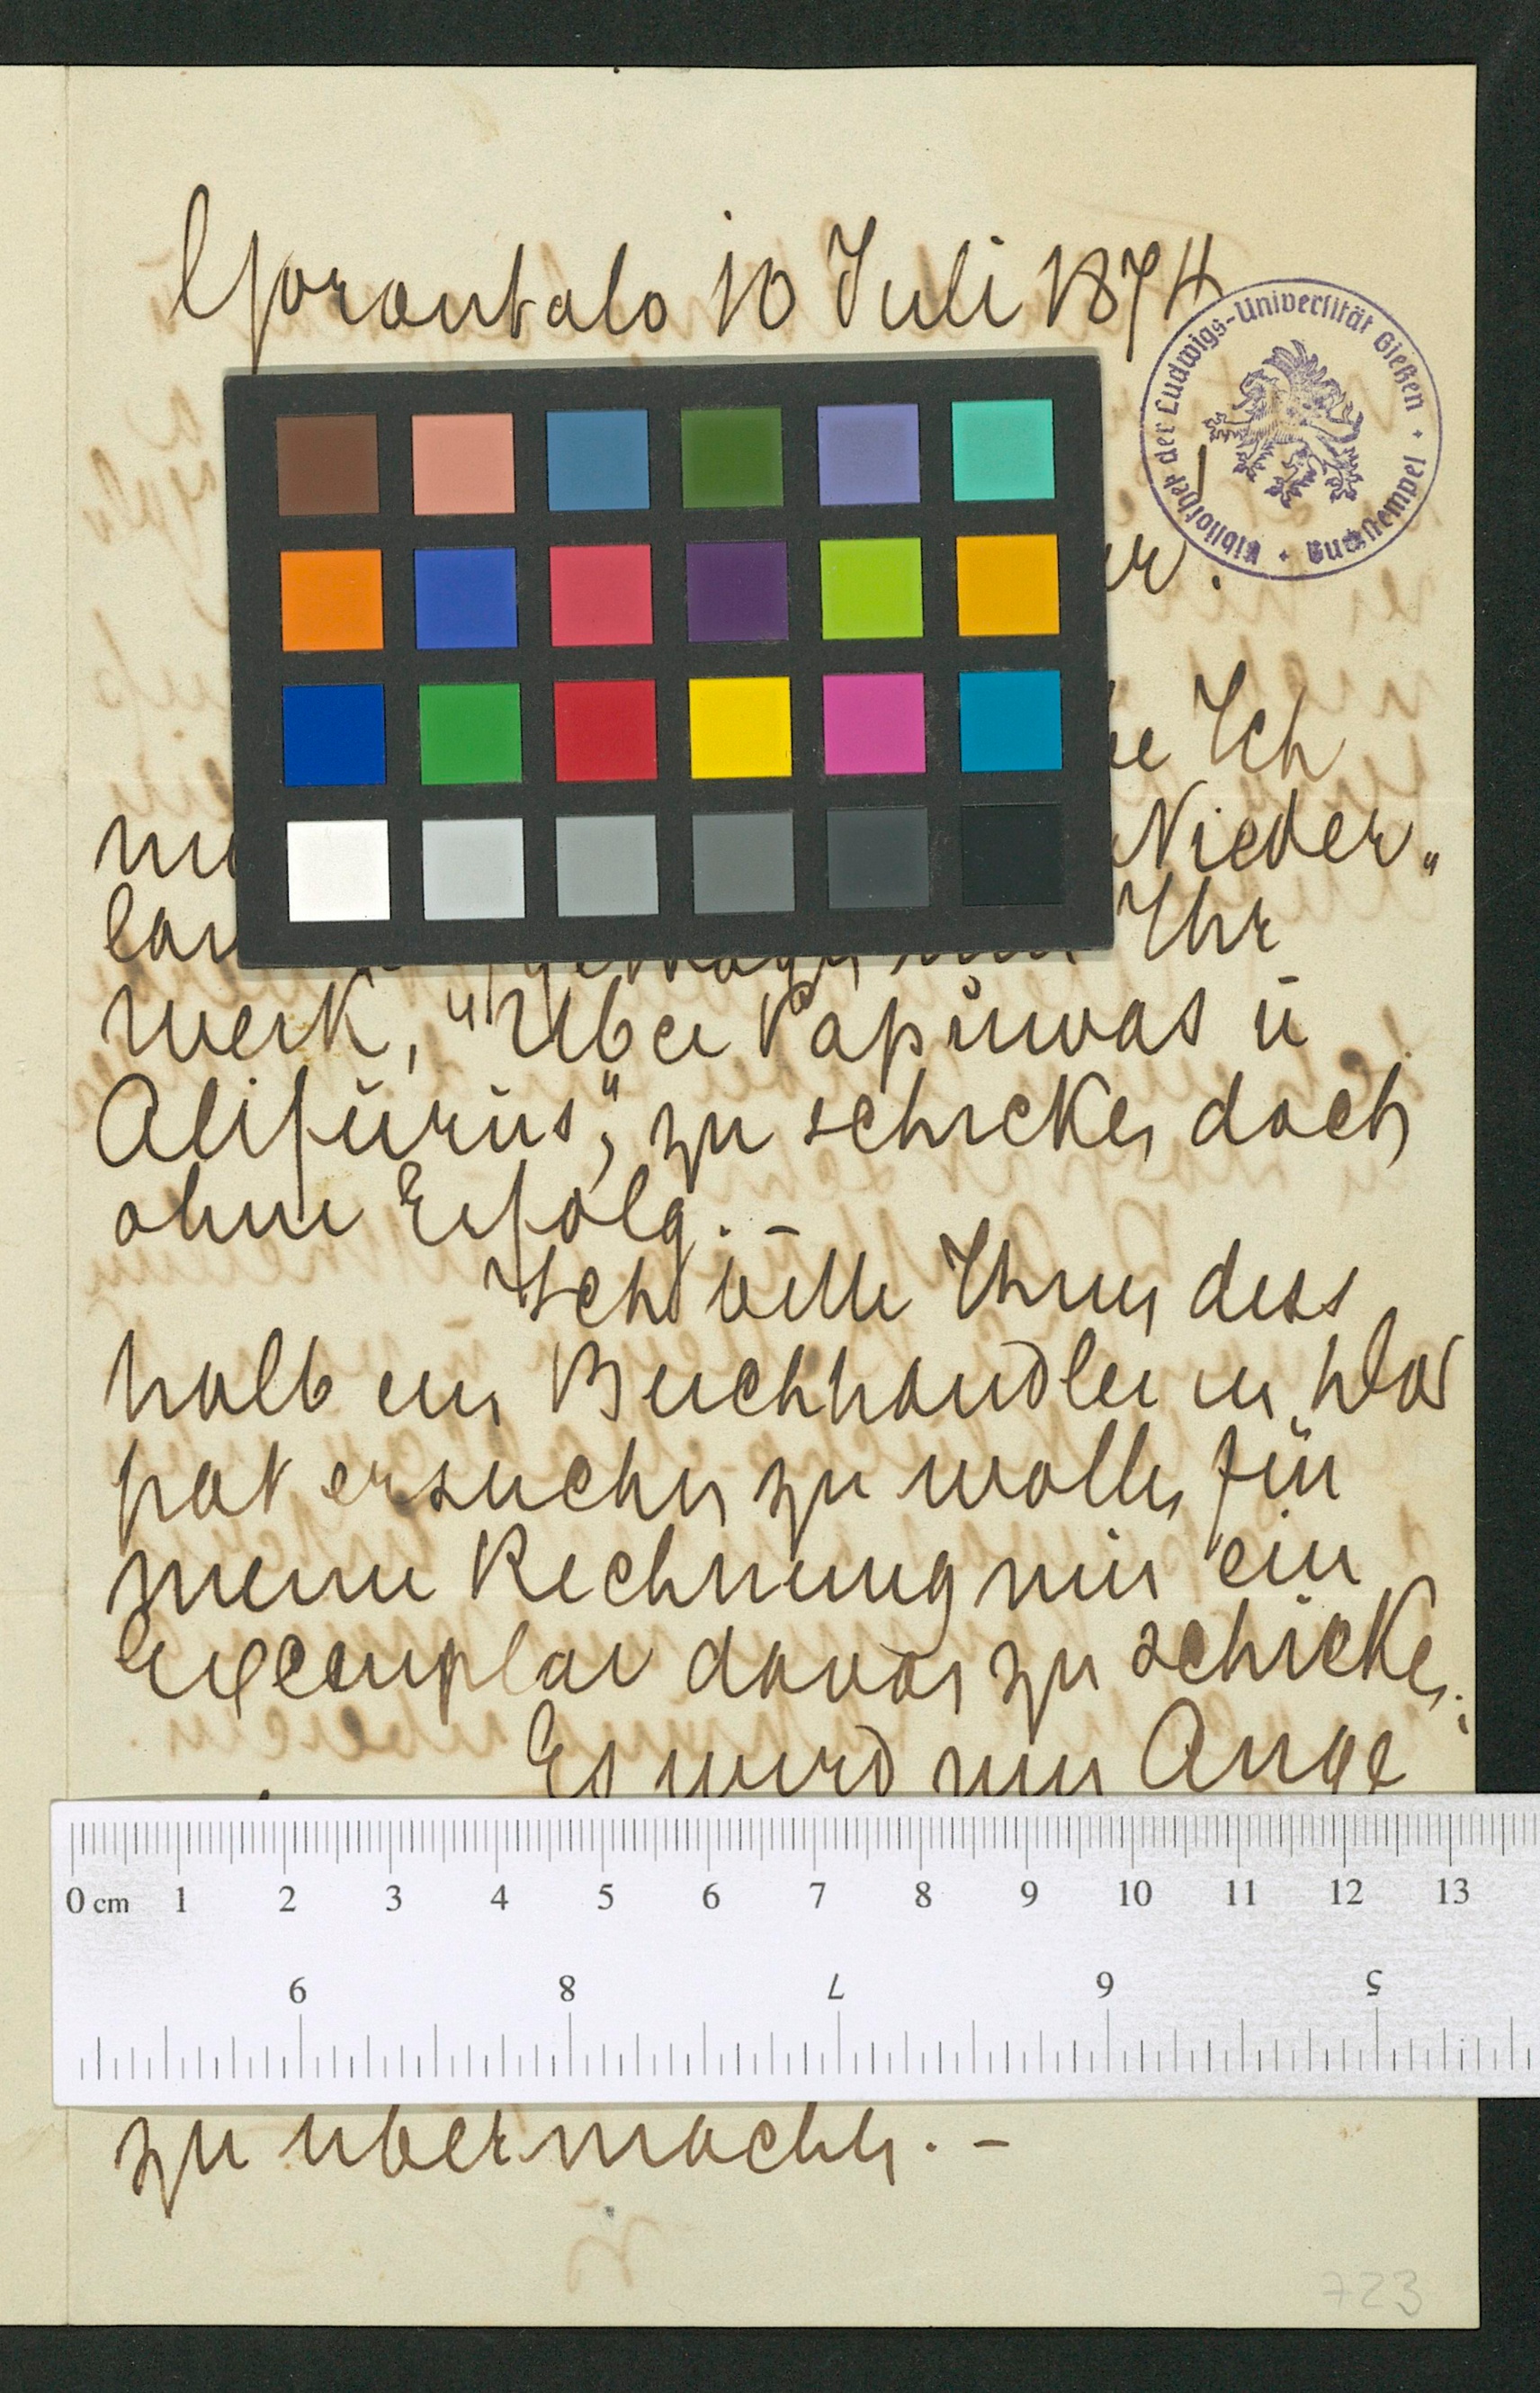 Gorontalo 10 Juli 1874
Bibliothek der Ludwigs-Universität Gießen · Buchstempel ·
Ich
Nieder„
Ihr
Werk, "Über Papuwas ü
Alifürüs", zu schicken doch
ohne Erfolg. –
Ich bitte Ihnen dess
halb ein Buchhandler in Dor
pat ersuchen zu wollen für
meine Rechnung mir ein
Exemplar davon zu schicken.
Es wird mir Ange
0 cm 1 2 3 4 5 6 7 8 9 10 11 12 13
9 8 7 6 5
zu übermachen. –
723